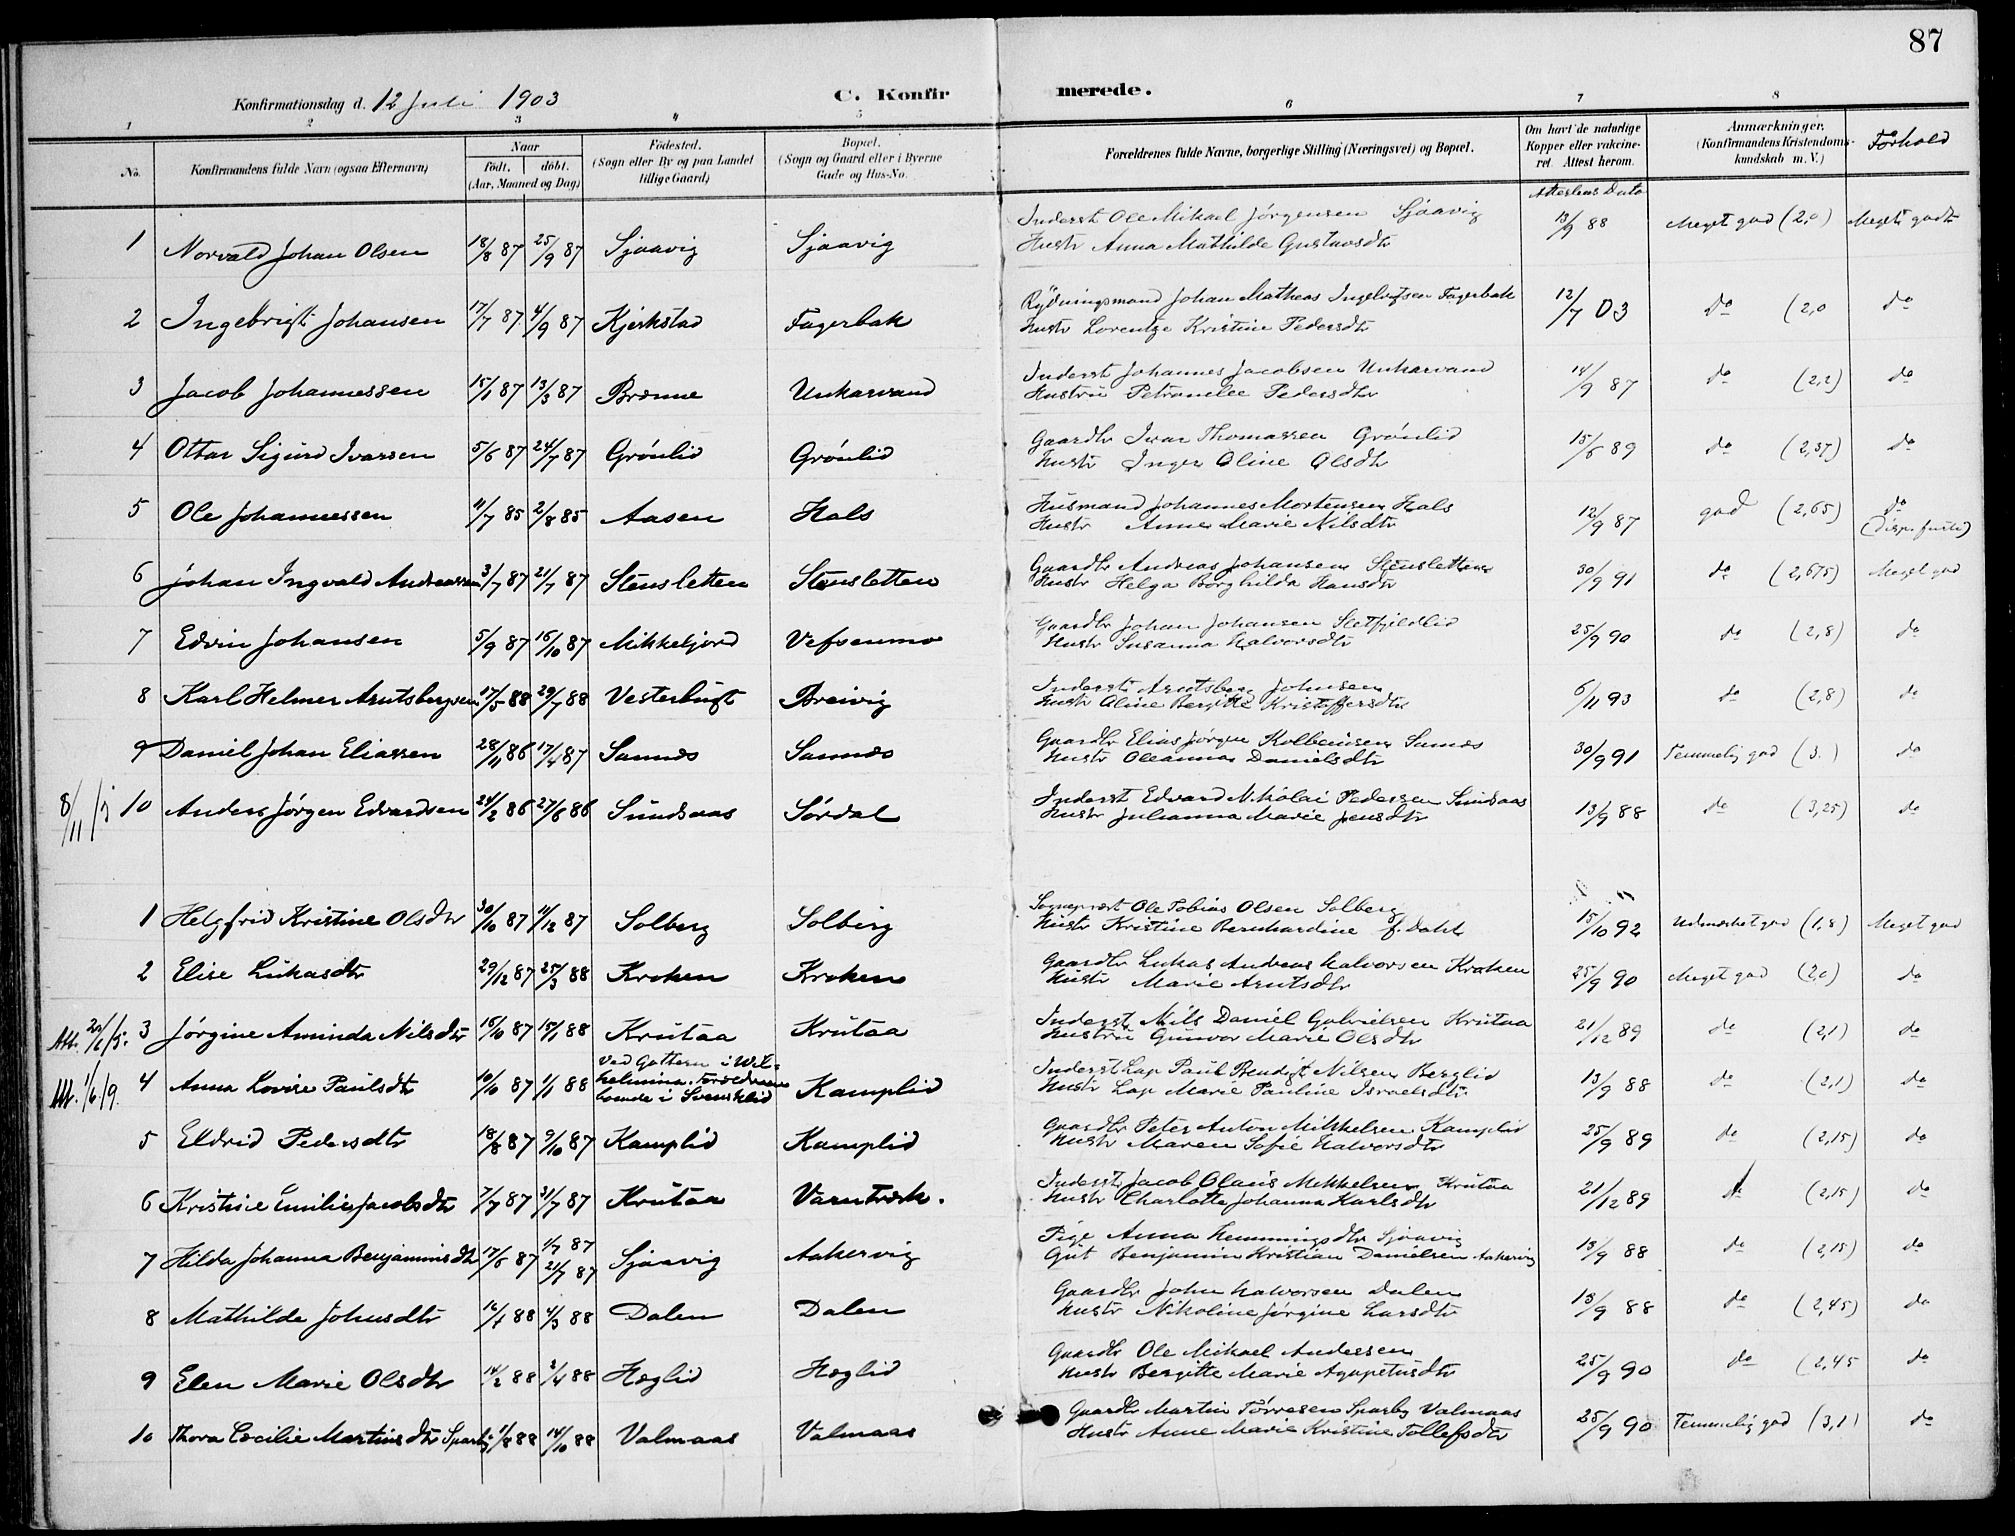 87
Konfirmationsdag d. 12 Juli 1903
C. Konfirmerede.
1 2 3 4 5 6 7 8
No.
Konfirmandens fulde Navn (ogsaa Efternavn)
Naar
født. døbt.
(Aar, Maaned og Dag)
Fødested.
(Sogn eller By og paa Landet
tillige Gaard)
Bopæl.
(Sogn og Gaard eller i Byerne
Gade og Hus-No.
Forældrenes fulde Navne, borgerlige Stilling (Næringsvei) og Bopæl.
Om havt de naturlige
Kopper eller vakcine-
ret. Attest herom.
Anmærkninger.
(Konfirmandens Kristendoms-
kundskab m. V.)
Forhold
Attestens Dato
1 Norvald Johan Olsen 18/8 87 25/9 87 Sjaavig Sjaavig Inderst Ole Mikael Jørgensen Sjaavig 13/9 88 Meget god (2,0) Meget godt
Hustr Anna Mathilde Gustavsdtr
2 Ingebrigt Johansen 17/7 87 4/9 87 Kjerkstad Fagerbak Rydningsmand Johan Mathias Ingebrigtsen Fagerbak 12/7 03 do (2,0 do
Hustr Lorentze Kristine Pedersdtr
3 Jacob Johannessen 15/1 87 13/3 87 Brenne Unkarvand Inderst Johannes Jacobsen Unkarvand 14/9 87 do (2,2) do
Hustru Petronelle Pedersdtr
4 Ottar Sigurd Ivarsen 5/6 87 24/7 87 Grønlid Grønlid Gaardbr Ivar Thomassen Grønlid 15/8 89 do (2,37) do
Hustr Inger Oline Olsdtr
5 Ole Johannessen 11/7 85 2/8 85 Aasen Hals Husmand Johannes Mortensen Hals 12/9 87 god (2,65) do
Hustr Anne Marie Nilsdtr
6 Johan Ingvald Andreassen 3/7 87 21/7 87 Stensletten Stensletten Gaardbr Andreas Johansen Stensletten 30/9 91 do (2,675) Meget god
Hustr Helga Borghilda Hansdtr
7 Edvin Johansen 5/9 87 16/10 87 Mikkeljord Vefsenmo Gaardbr Johan Johansen Sletfjeldlid 25/9 90 do (2,8) do
Hustr Susanna Halvorsdtr
8 Karl Helmer Arntsbergsen 17/5 88 29/7 88 Vesterbugt Breivig Inderst Arntsberg Johnsen 6/11 93 do (2,8) do
Hustr Oline Bergitte Kristoffersdtr
9 Daniel Johan Eliassen 28/11 86 17/4 87 Sannes Sannes Gaardbr Elias Jørgen Kolbeinsen Sannes 30/9 91 Temmelig god (3.) do
Hustr Oleanna Danielsdtr
8/11 10 Anders Jørgen Edvardsen 24/2 86 27/6 86 Sundsaas Sørdal Inderst Edvard Nikolai Pedersen Sundsaas 13/9 88 do (3,25) do
Hustr Julianna Marie Jensdtr
1 Helgfrid Kristine Olsdtr 30/10 87 11/12 87 Solberg Solberg Sogneprest Ole Tobias Olsen Solberg 15/10 92 Udmærket god (1,8) Meget god
Hustr Kristine Bernhardine f. Dahl
2 Elise Lukasdtr 29/12 87 25/3 88 Kroken Kroken Gaardbr Lukas Andreas Halvorsen Kroken 25/9 90 Meget god (2,0) do
Hustr Marie Arntsdtr
3 Jørgine Aminda Nilsdtr 16/10 87 15/1 88 Krutaa Krutaa Inderst Nils Daniel Gabrielsen Krutaa 21/12 89 do (2,1) do
Hustru Gunvor Marie Olsdtr
Att. 1/6 19. 4 Anna Lovise Paulsdtr 10/10 87 1/1 88 Ved Gottern i Wil-
helmina. Forældrene
boende i Svensklid Kamplid Inderst Lap Paul Bendigt Nilsen Berglid 13/9 88 do (2,1) do
Hustr Lap Marie Pauline Israelsdtr
5 Eldrid Pedersdtr 18/8 87 9/10 87 Kamplid Kamplid Gaardbr Peter Anton Mikkelsen Kamplid 25/9 89 do (2,15) do
Hustr Maren Sofie Halvorsdtr
6 Kristine Emilie Jacobsdtr 7/7 87 31/7 87 Krutaa Varntræsk. Inderst Jacob Olaus Mikkelsen Krutaa 21/12 89 do (2,15) do
Hustr Charlotta Johanna Karlsdtr
7 Hilda Johanna Benjaminsdtr 17/6 87 1/7 87
21/7 87 Sjaavig Aakervig Pige Anna Hemmingsdtr Sjaavig 13/9 88 do (2,15) do
Gut Benjamin Kristian Danielsen Aakervig
8 Mathilde Johnsdtr 16/1 88 4/3 88 Dalen Dalen Gaardbr John Halvorsen Dalen 13/9 88 do (2,45) do
Hustr Nikoline Jørgine Larsdtr
9 Elen Marie Olsdtr 14/2 88 2/4 88 Hæglid Hæglid Gaardbr Ole Mikael Andersen 25/9 90 do (2,45 do
Hustr Bergitte Marie Agapetusdtr
10 Thora Cecilie Martinsdtr Sparby 1/8 88 14/10 88 Valmaas Valmaas Gaardbr Martin Tørresen Sparby Valmaas 25/9 90 Temmelig god (3,1) do
Hustr Anne Marie Kristine Tollefsdtr